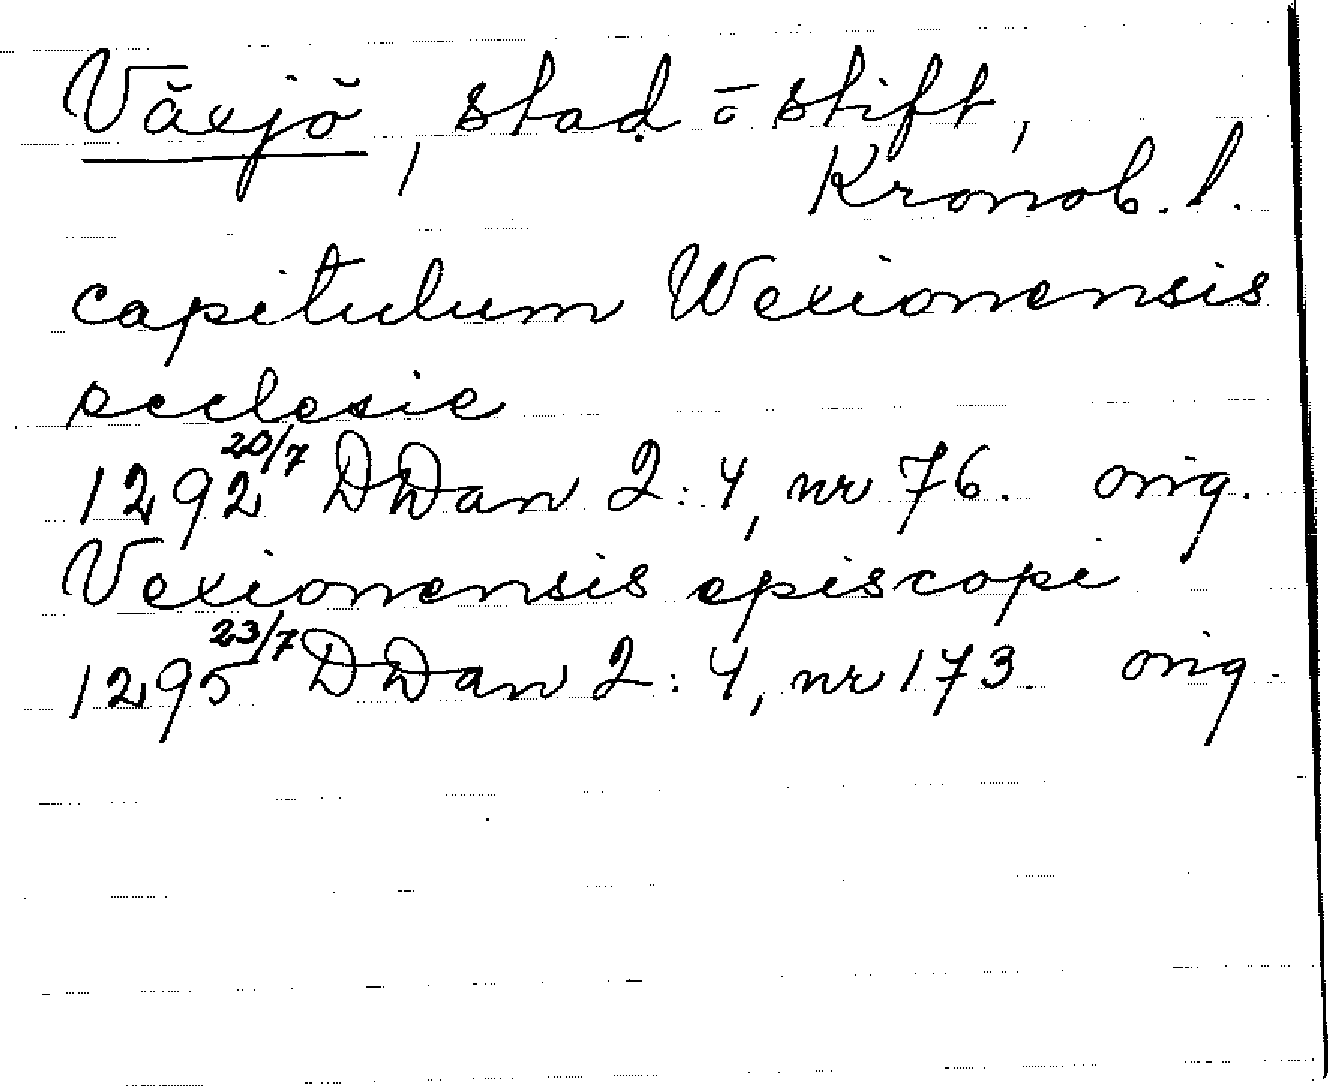 Växjö, stad o stift,
Kronob. l.
capitulum Wexionensis
ecclesie
1292 20/7 DDan 2:4, nr 76. orig.
Vexionensis episcopi
1295 23/7 DDan 2:4, nr 173 orig.